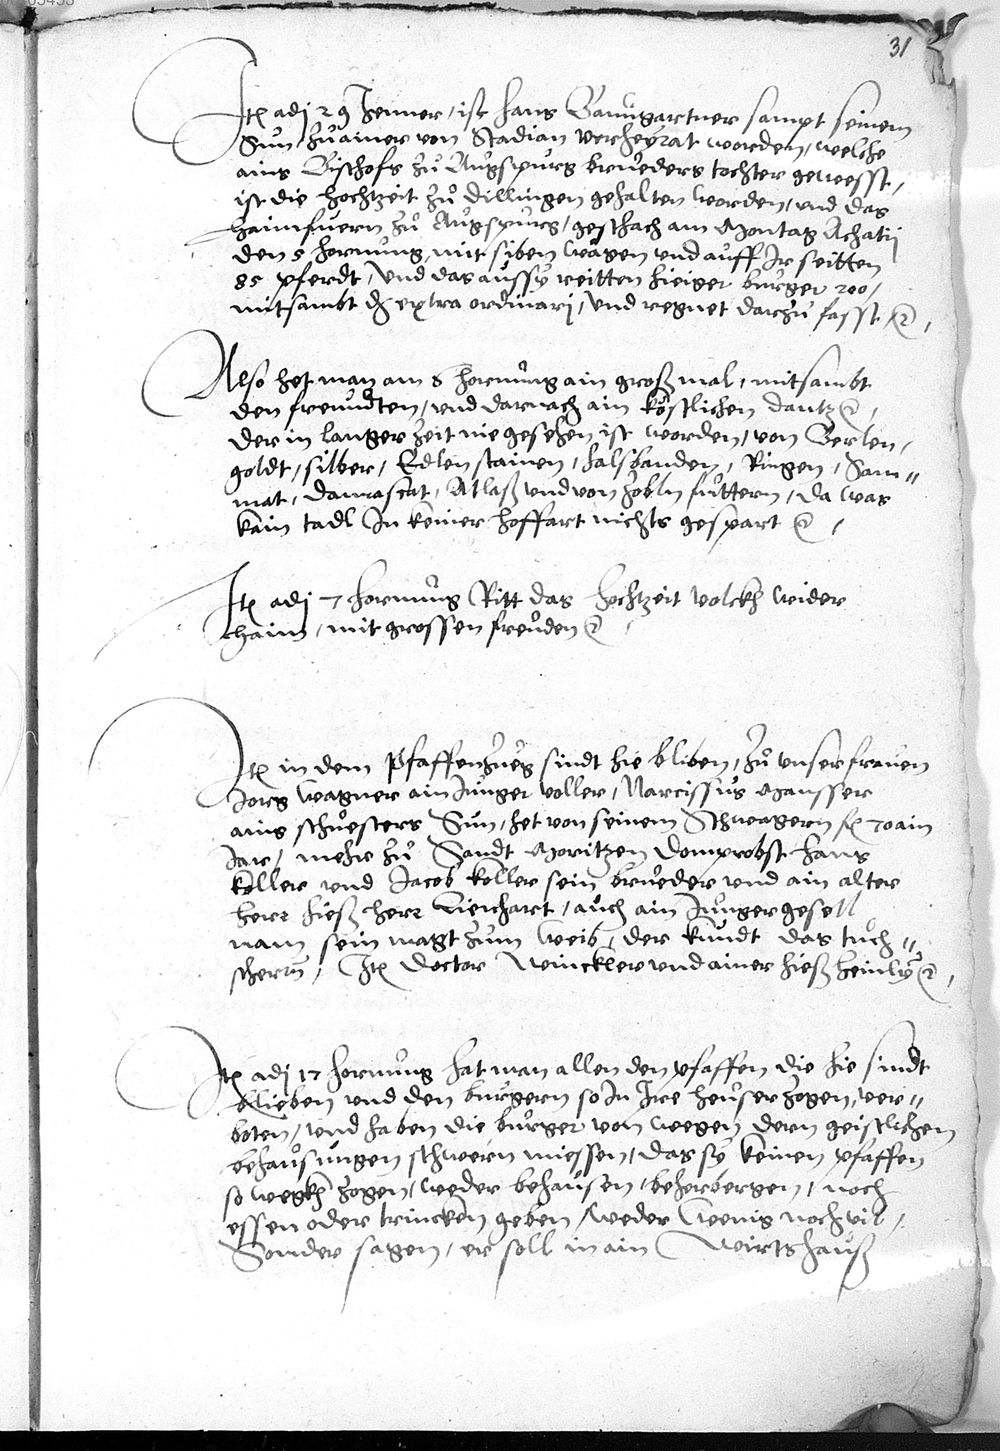 31
Itē adj 29 Jenner / ist hans Baumgartner sampt seinem
Sun zu ainer von Stadian verheyrat worden, welche
ains Bischofs zů Augspurg bruëders tochter gewesst,
ist die hochtzeit zů Dillingen gehalten worden, vnd das
haimfuern zů Augspurg / geschach am Montag Achatij
den 5 hornung, mit siben wägen vnd auff Ir seitten
85 pferdt, vnd das aussy reitten hieiger burger 200 /
mitsambt dē extra ordinarj, vnd regnet darzů fasst
Also het man am 5 hornung ain groß mal, mitsambt
den freundten, vnd darnach ain köstlichen dantz
der in langer zeit nie gesehen ist worden, von Berlen,
goldt, silber, Edlen stainen, halsbanden, Ringen, Sam=
mat, damascat, Atlaß vnd von zobln fuettern, da was
kain tadl In keiner hoffart nichts gespart
Itē adj 7 hornung Ritt das hochtzeit volckh wider
haim, mit grossen freuden
Itē in dem Pfaffenzueg sindt hie bliben, zů vnser frauen
Jorg wagner ain Junger voller, Narcissus Mausser
ains schuesters Sun, het von seinem Schwagern fl 70 ain
Jar, mehr zů Sandt Moritzen Domprobst hans
koller vnd Jacob koller sein brueder vnd ain alter
herr hieß herr Lienhart, auch ain Junger gesell
nam sein magt zum weib, der kundt das tuch=
schern, Itē Doctor Winckler vnd ainer hieß heinly
Itē adj 17 hornung hat man allen den pfaffen die hie sindt
blieben vnd den burgern so In Ire heuser zogen, ver=
boten, vnd haben die burger von wegen dern geistlichen
behausungen schwern miessen, das sy keinen pfaffen
so wegkh zogen, weder behausen, beherbergen, noch
essen oder trincken geben, weder wenig noch vil,
Sonder sagen, er soll in ain Wirtshauß